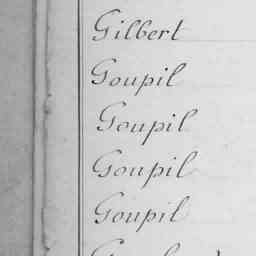 Gilbert
Goupil
Goupil
Goupil
Goupil